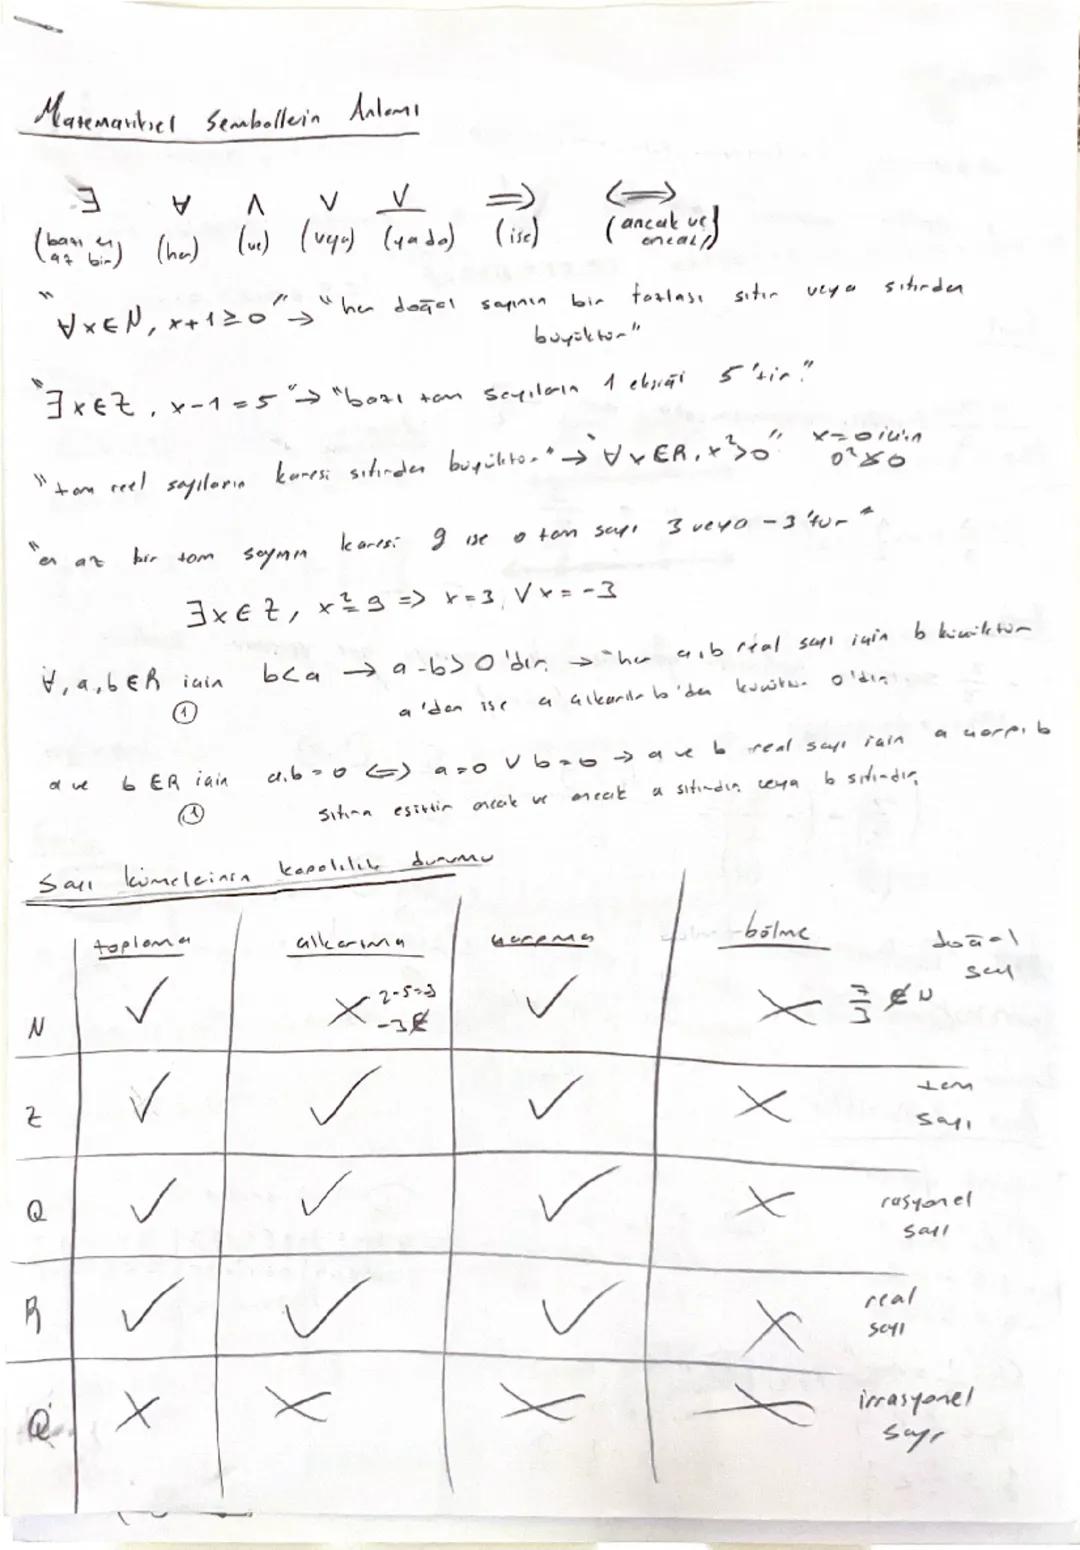 Matematiksel Sembollerin Anlamı
∃ ∀ ∧ ∨ ⊻ => <=>
(bazı en az bir) (her) (ve) (veya) (ya da) (ise) (ancak ve ancak)
"∀x∈N, x+1≥0" → "her doğal sayının bir fazlası sıfır veya sıfırdan
büyüktür"
"∃x∈Z, x-1=5" → "bazı tam sayıların 1 eksiği 5'tir."
"tam reel sayıların karesi sıfırdan büyüktür" → "∀x∈R, x²>0" x=0 için
0²≯0
"en az bir tam sayının karesi 9 ise o tam sayı 3 veya -3'tür"
∃x∈Z, x²=9 => x=3 ∨ x=-3
∀, a,b∈R için b<a → a-b>0'dır. → "her a,b real sayı için b küçüktür
① a'dan ise a çıkarılır b'den küçüktür 0'dır.
a ve b ∈R için a.b=0 <=> a=0 ∨ b=0 → a ve b real sayı için a çarpı b
① sıfıra eşittir ancak ve ancak a sıfırdır veya b sıfırdır.
Sayı kümelerinin kapalılık durumu
toplama çıkarma çarpma bölme doğal
sayı
N ✓ ✗ 2-5=-3 ✓ ✗ 7/3 ∉ N
-3∉
Z ✓ ✓ ✓ ✗ tam
sayı
Q ✓ ✓ ✓ ✗ rasyonel
sayı
R ✓ ✓ ✓ ✗ real
sayı
Q' ✗ ✗ ✗ ✗ irrasyonel
sayı